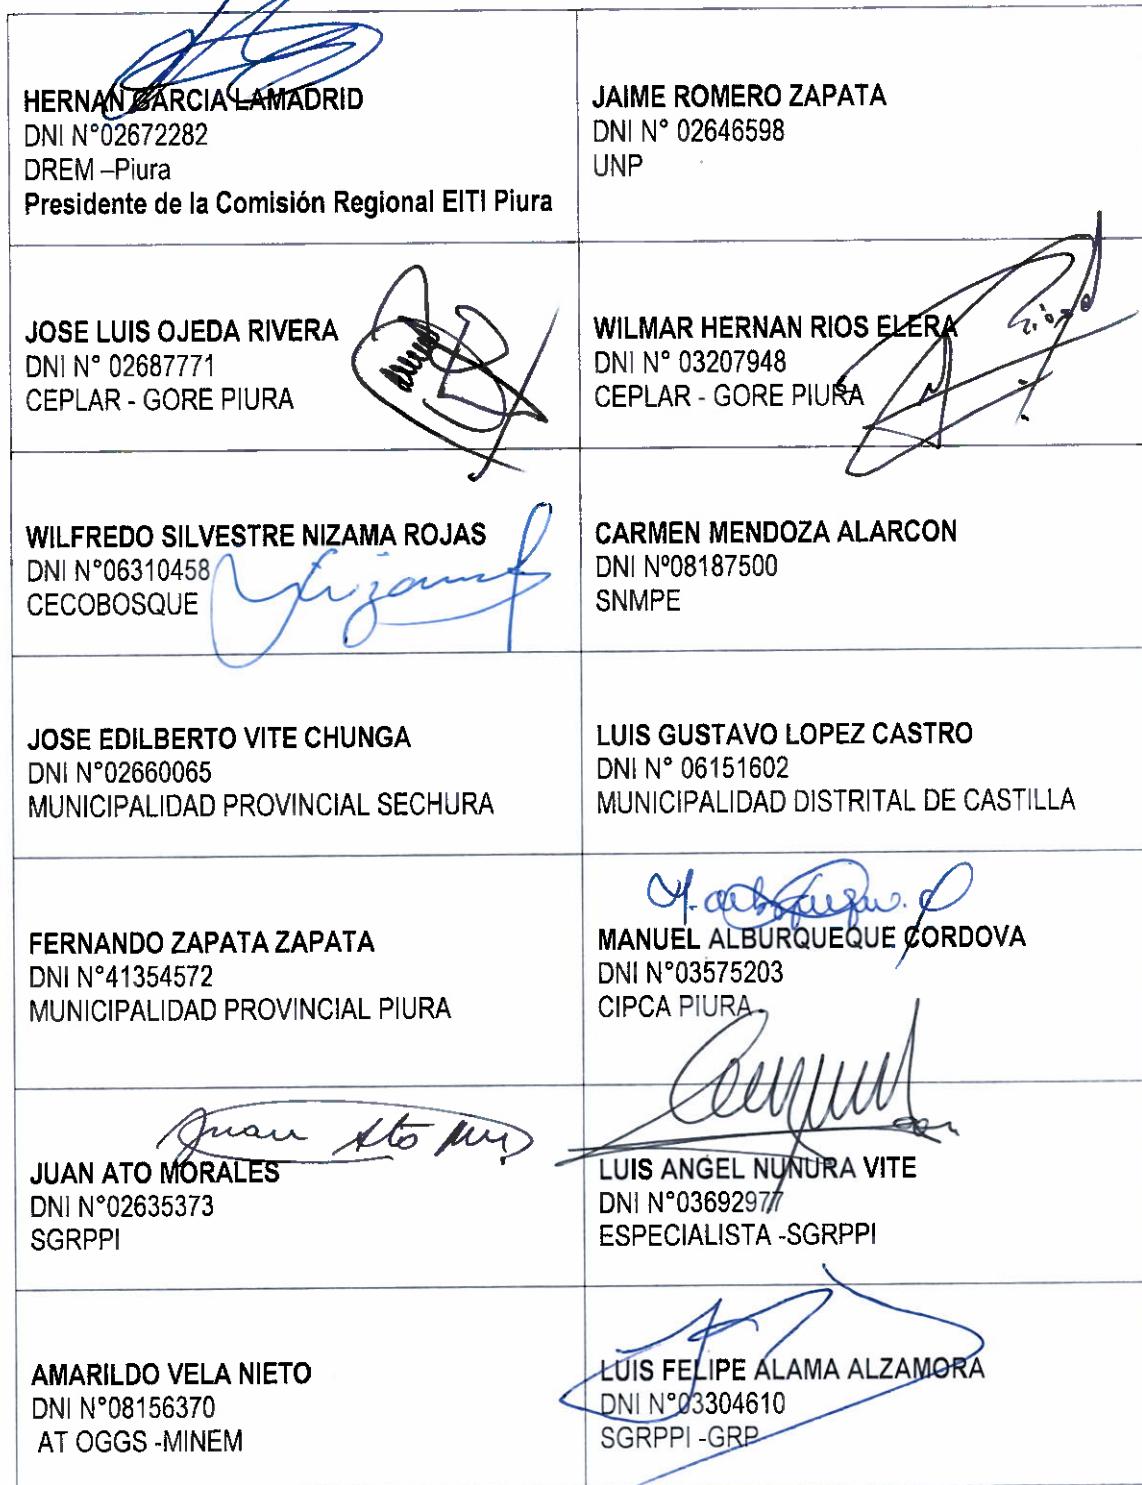 HERNAN GARCIA LAMADRID
DNI N°02672282
DREM –Piura
Presidente de la Comisión Regional EITI Piura
JAIME ROMERO ZAPATA
DNI N° 02646598
UNP
JOSE LUIS OJEDA RIVERA
DNI N° 02687771
CEPLAR - GORE PIURA
WILMAR HERNAN RIOS ELERA
DNI N° 03207948
CEPLAR - GORE PIURA
WILFREDO SILVESTRE NIZAMA ROJAS
DNI N°06310458
CECOBOSQUE
CARMEN MENDOZA ALARCON
DNI Nº08187500
SNMPE
JOSE EDILBERTO VITE CHUNGA
DNI N°02660065
MUNICIPALIDAD PROVINCIAL SECHURA
LUIS GUSTAVO LOPEZ CASTRO
DNI N° 06151602
MUNICIPALIDAD DISTRITAL DE CASTILLA
FERNANDO ZAPATA ZAPATA
DNI N°41354572
MUNICIPALIDAD PROVINCIAL PIURA
MANUEL ALBURQUEQUE CORDOVA
DNI N°03575203
CIPCA PIURA
Juan Ato
JUAN ATO MORALES
DNI N°02635373
SGRPPI
LUIS ANGEL NUNURA VITE
DNI N°03692977
ESPECIALISTA -SGRPPI
AMARILDO VELA NIETO
DNI N°08156370
AT OGGS -MINEM
LUIS FELIPE ALAMA ALZAMORA
DNI N°03304610
SGRPPI -GRP